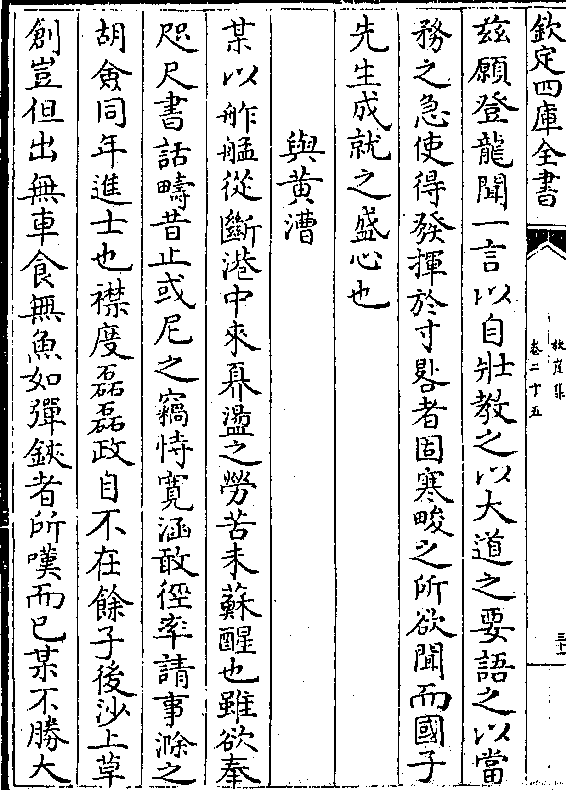 欽定四庫全書
卷二十五
茲願登龍聞一言以自壯教之以大道之要語之以當
務之急使得發揮於寸晷者固寒畯之所欲聞而國子
先生成就之盛心也
與黃漕
某以舴艋從斷港中來鼎盪之勞苦未蘇醒也雖欲奉
咫尺書話疇昔止或尼之竊恃寬涵敢徑率請事滁之
胡僉同年進士也襟度磊磊政自不在餘子後沙上草
創豈但出無車食無魚如彈鋏者所嘆而已某不勝大